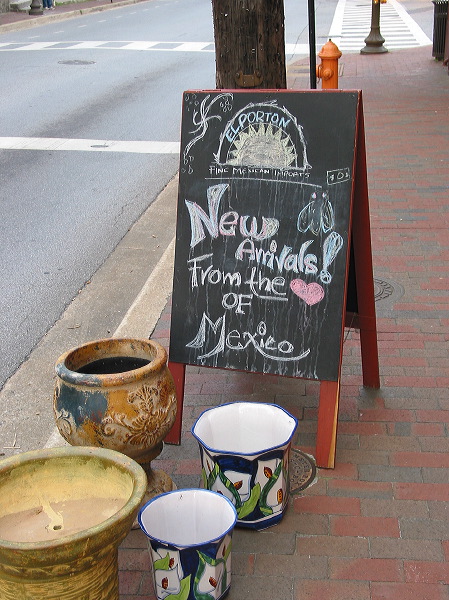 EL PORTON
FINE MEXICAN IMPORTS
New
Arrivals!
From the
OF
Mexico